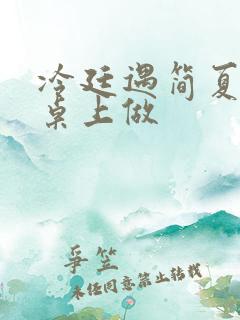 冷廷遇简夏
桌上做
争笠
未经同意禁止转载